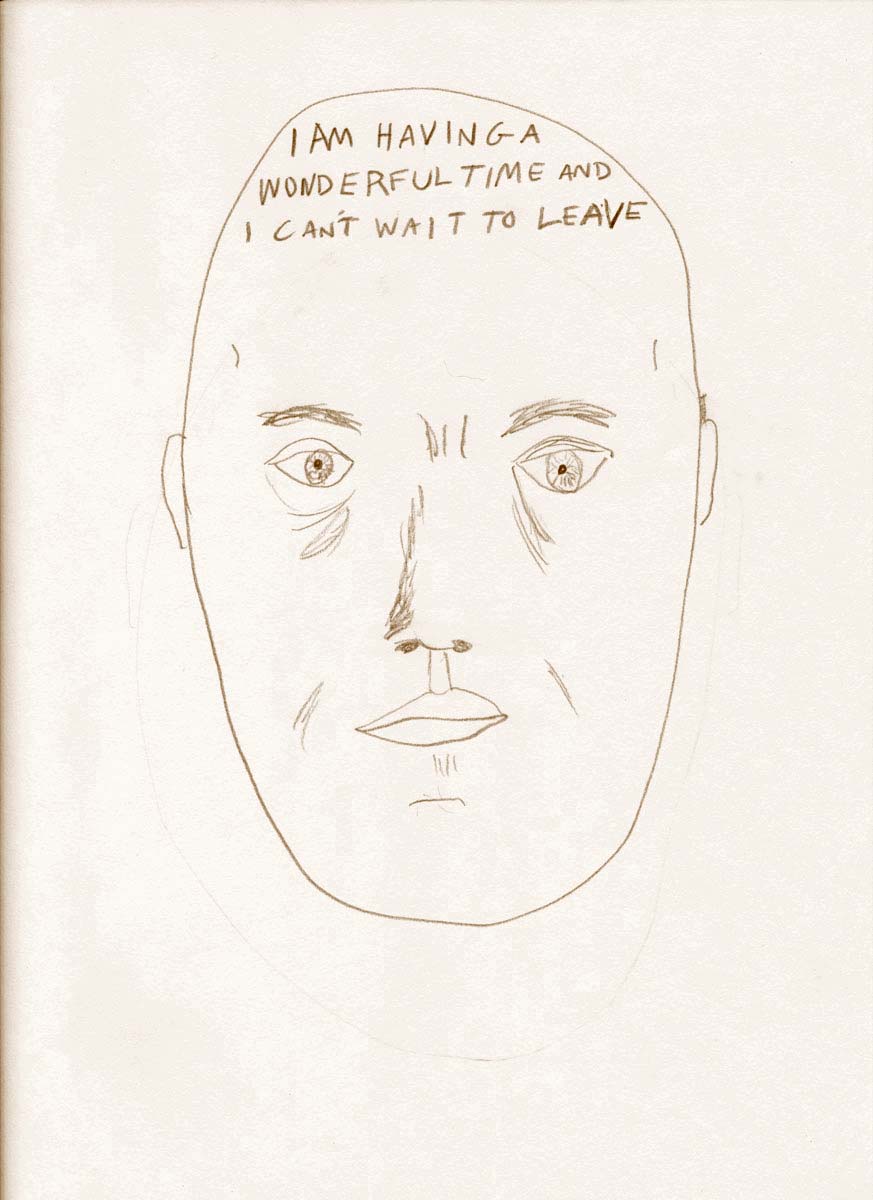 I AM HAVING A
WONDERFUL TIME AND
I CAN'T WAIT TO LEAVE